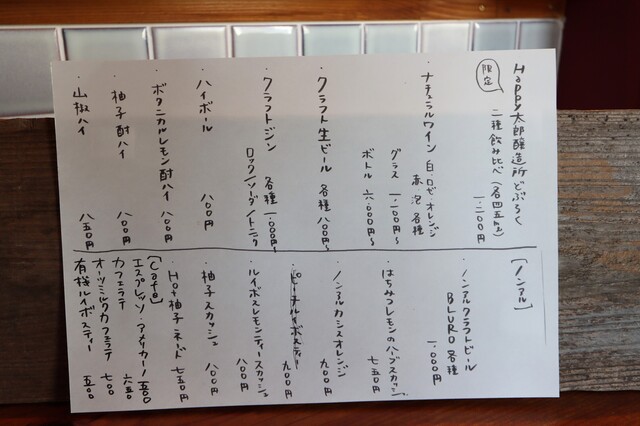 Happy太郎醸造所どぶろく
限定
二種飲み比べ(各四五ml)
一、二〇〇円
・ナチュラルワイン 白・ロゼ・オレンジ
赤 泡 各種
グラス 一、二〇〇円〜
ボトル 六、〇〇〇円〜
・クラフト生ビール 各種 八〇〇円〜
・クラフトジン 各種 一、〇〇〇円〜
ロック/ソーダ/トニック
・ハイボール 八〇〇円
・ボタニカルレモン酎ハイ 八〇〇円
・柚子酎ハイ 八〇〇円
・山椒ハイ 八五〇円
[ノンアル]
・ノンアルクラフトビール
BLURO 各種
一、〇〇〇円
・はちみつレモンのハーブスカッシュ
七五〇円
・ノンアルカシスオレンジ
九〇〇円
ルイボスティー
九〇〇円
・ルイボスレモンティースカッシュ
八〇〇円
・柚子スカッシュ 八〇〇円
・Hot柚子ネード 七五〇円
[Cafe]
エスプレッソ・アメリカーノ 五〇〇
カフェラテ 六五〇
オーツミルクカフェラテ 七〇〇
有機ルイボスティー 五〇〇